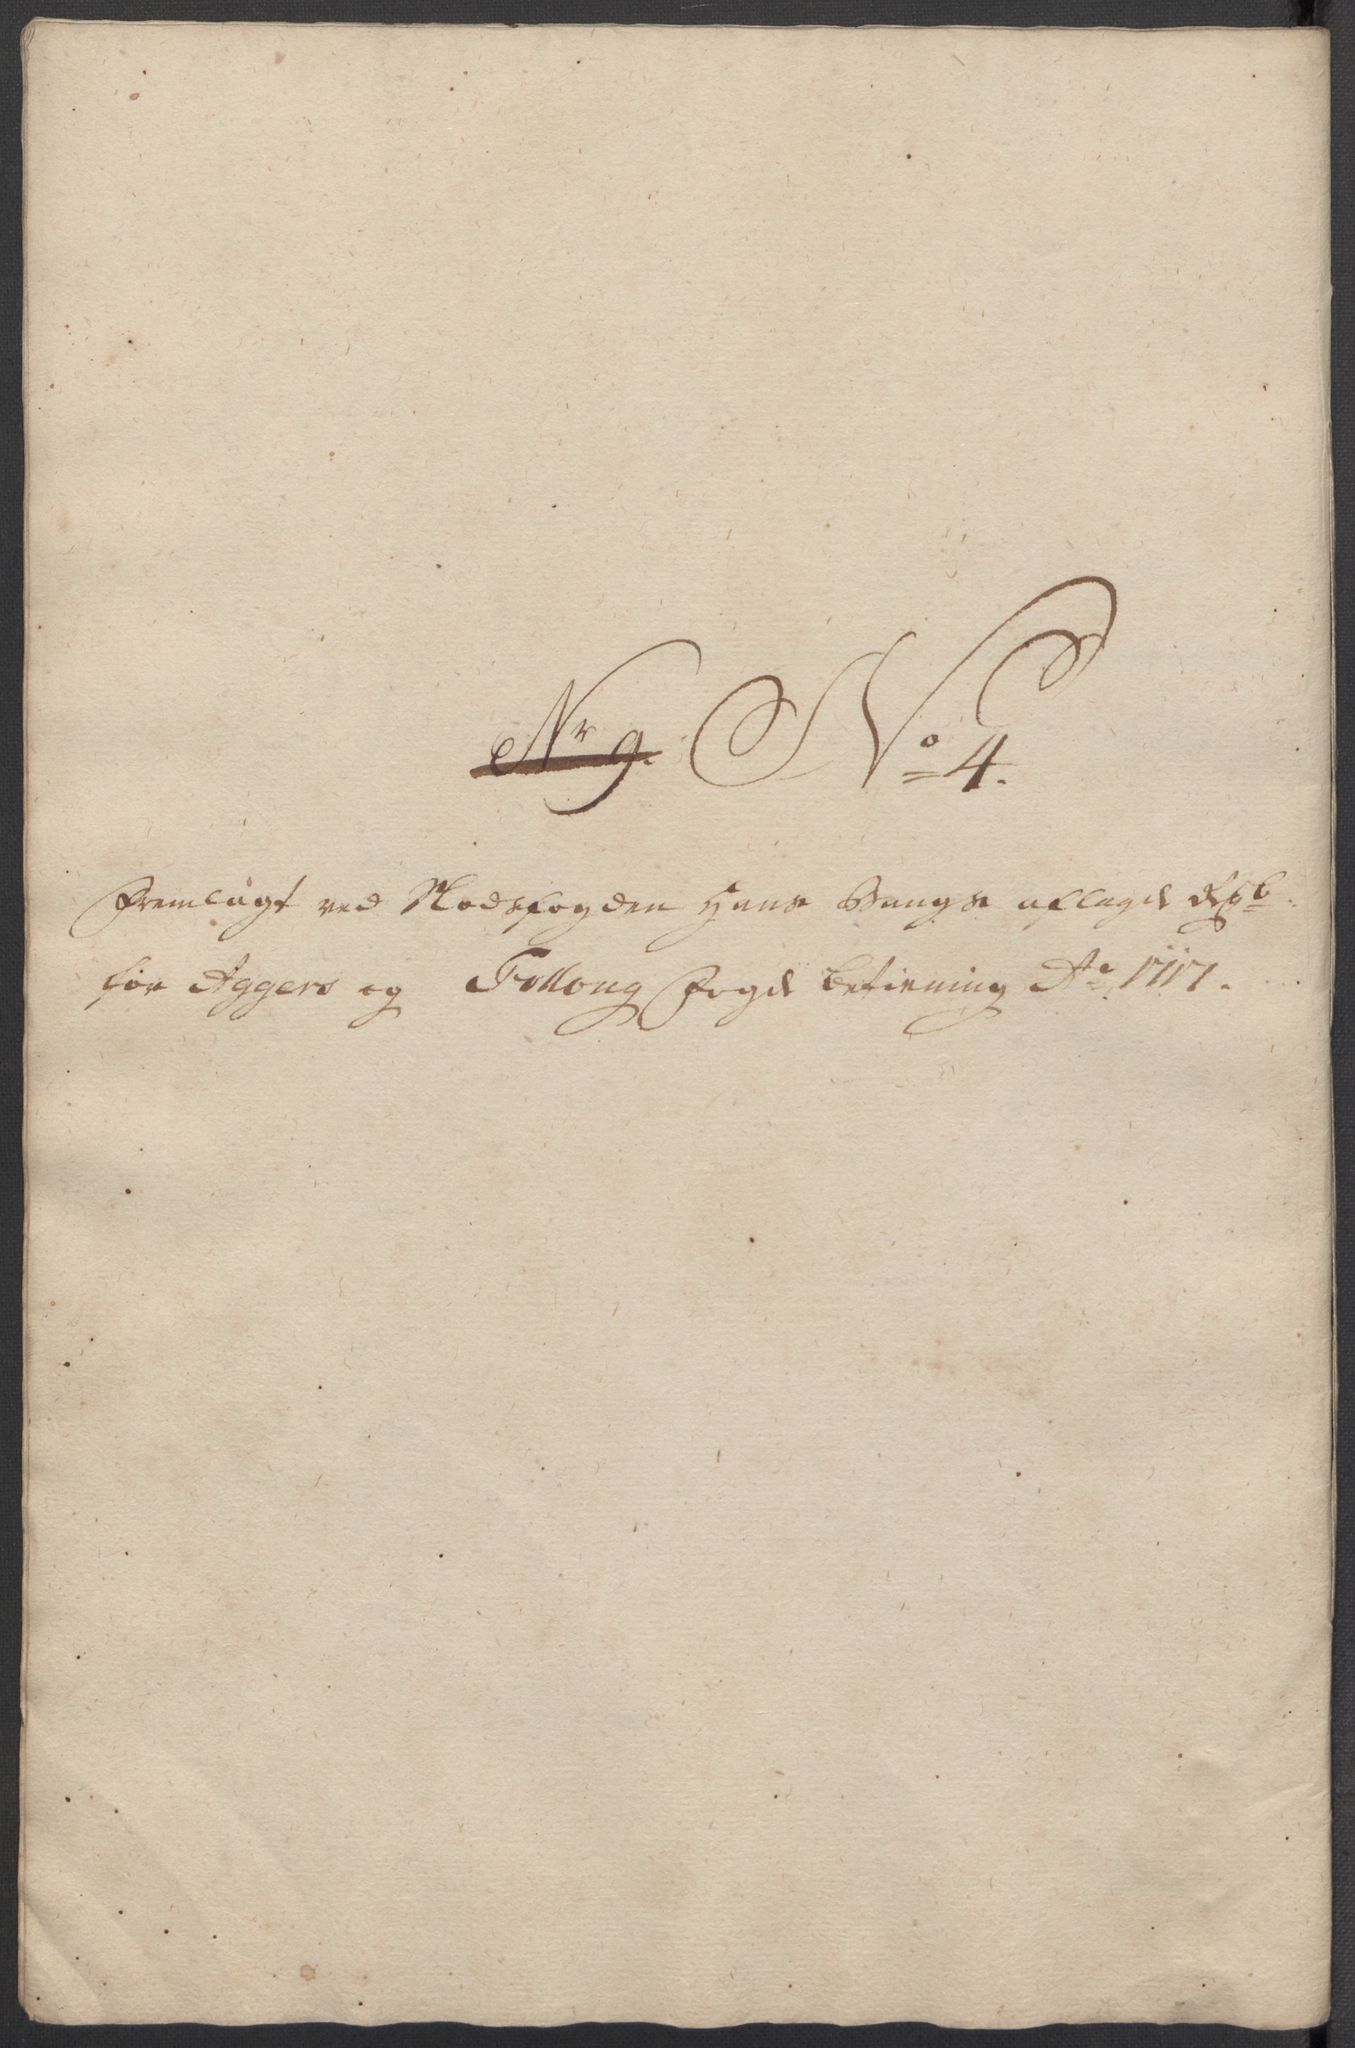 Nr 9. No 4.
Fremlagt ved Slodsfogden Hans Bangs aflagde
for Aggers og Follong Fogd betiening Ao 1717.